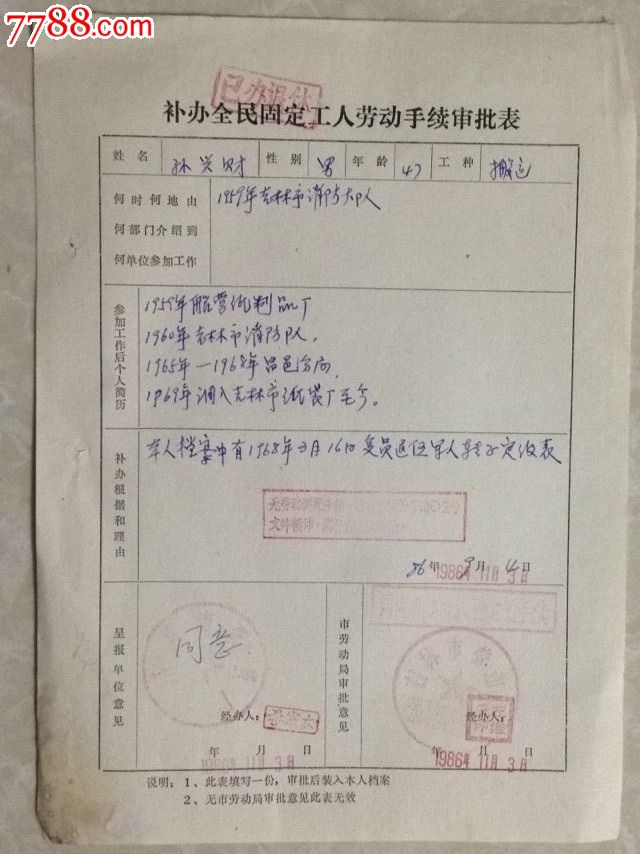 7788.com
已办退休
补办全民固定工人劳动手续审批表
姓名 孙兴财 性别 男 年龄 47 工种 搬运
何时何地由
何部门介绍到
何单位参加工作
1959年吉林市消防大队
参加工作后个人简历
1959年船营纸制品厂
1960年吉林市消防队,
1965年—1968年昌邑分局,
1969年调入吉林市纸袋厂至今。
补办根据和理由
本人档案中有1968年3月16日复员退伍军人
表
无劳动
文件
86年9月4日
1986年11月3日
呈报单位意见
同意.
经办人:
年 月 日
1986年11月3日
市劳动局审批意见
经办人:
年 月 日
1986年11月3日
说明: 1、此表填写一份,审批后装入本人档案
2、无市劳动局审批意见此表无效